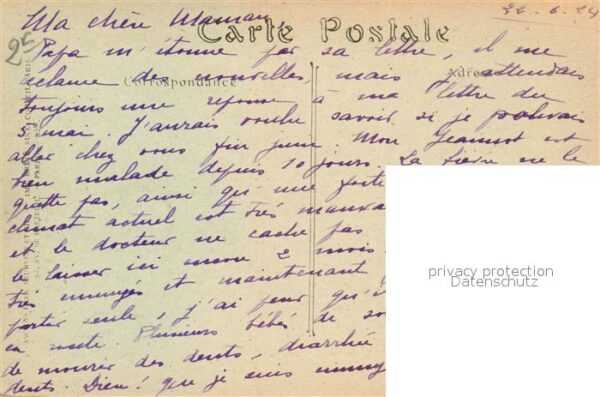 22-6-24
Ma chère Maman,
Carte Postale
25
Papa m'étonne par sa lettre, il me
réclame des nouvelles, mais j'attendais
Correspondance
Adresse
toujours une réponse à ma lettre du
5 mai. J'aurais voulu savoir si je pouvais
aller chez vous fin juin. Mon Jeannot est
bien malade depuis 10 jours. La fièvre ne le
quitte pas, ainsi qu'une forte
climat actuel est très mauva
et le docteur ne cache pas
le laisser ici encore 2 mois.
très ennuyés et maintenant
partir seule, j'ai peur qu'i
en route. Plusieurs bébés de so
de mourir des dents, diarrhé
dents. Dieu! que je suis ennuy
privacy protection
Datenschutz